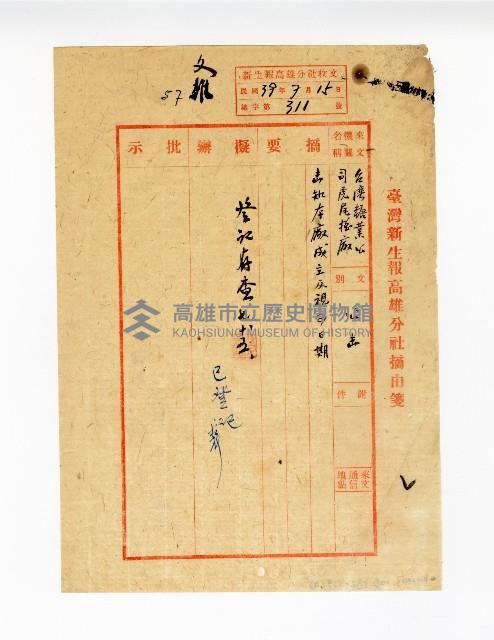 文雜
57
新生報高雄分社收文
民國39年7月15日
總字第311號
臺灣新生報高雄分社摘由箋
來文機關名稱
台灣糖業公
司虎尾糖廠
文別
附件
來文通信地點
摘要
擬辦
批示
登記存查 七、十五
已登記
高雄市立歷史博物館
KAOHSIUNG MUSEUM OF HISTORY